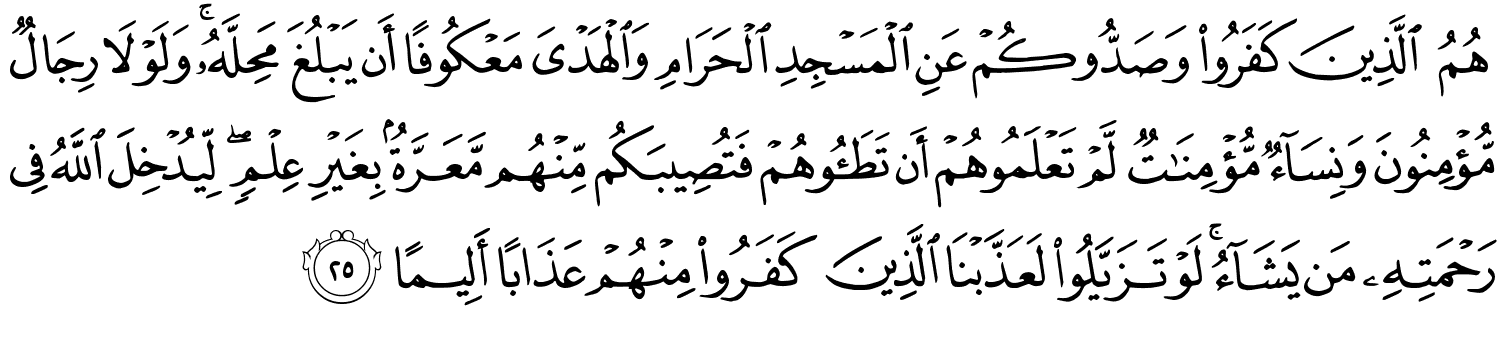 هُمُ ٱلَّذِينَ كَفَرُوا۟ وَصَدُّوكُمْ عَنِ ٱلْمَسْجِدِ ٱلْحَرَامِ وَٱلْهَدْىَ مَعْكُوفًا أَن يَبْلُغَ مَحِلَّهُۥ ۚ وَلَوْلَا رِجَالٌ
مُّؤْمِنُونَ وَنِسَآءٌ مُّؤْمِنَـٰتٌ لَّمْ تَعْلَمُوهُمْ أَن تَطَـُٔوهُمْ فَتُصِيبَكُم مِّنْهُم مَّعَرَّةٌۢ بِغَيْرِ عِلْمٍ ۖ لِّيُدْخِلَ ٱللَّهُ فِى
رَحْمَتِهِۦ مَن يَشَآءُ ۚ لَوْ تَزَيَّلُوا۟ لَعَذَّبْنَا ٱلَّذِينَ كَفَرُوا۟ مِنْهُمْ عَذَابًا أَلِيمًا ٢٥